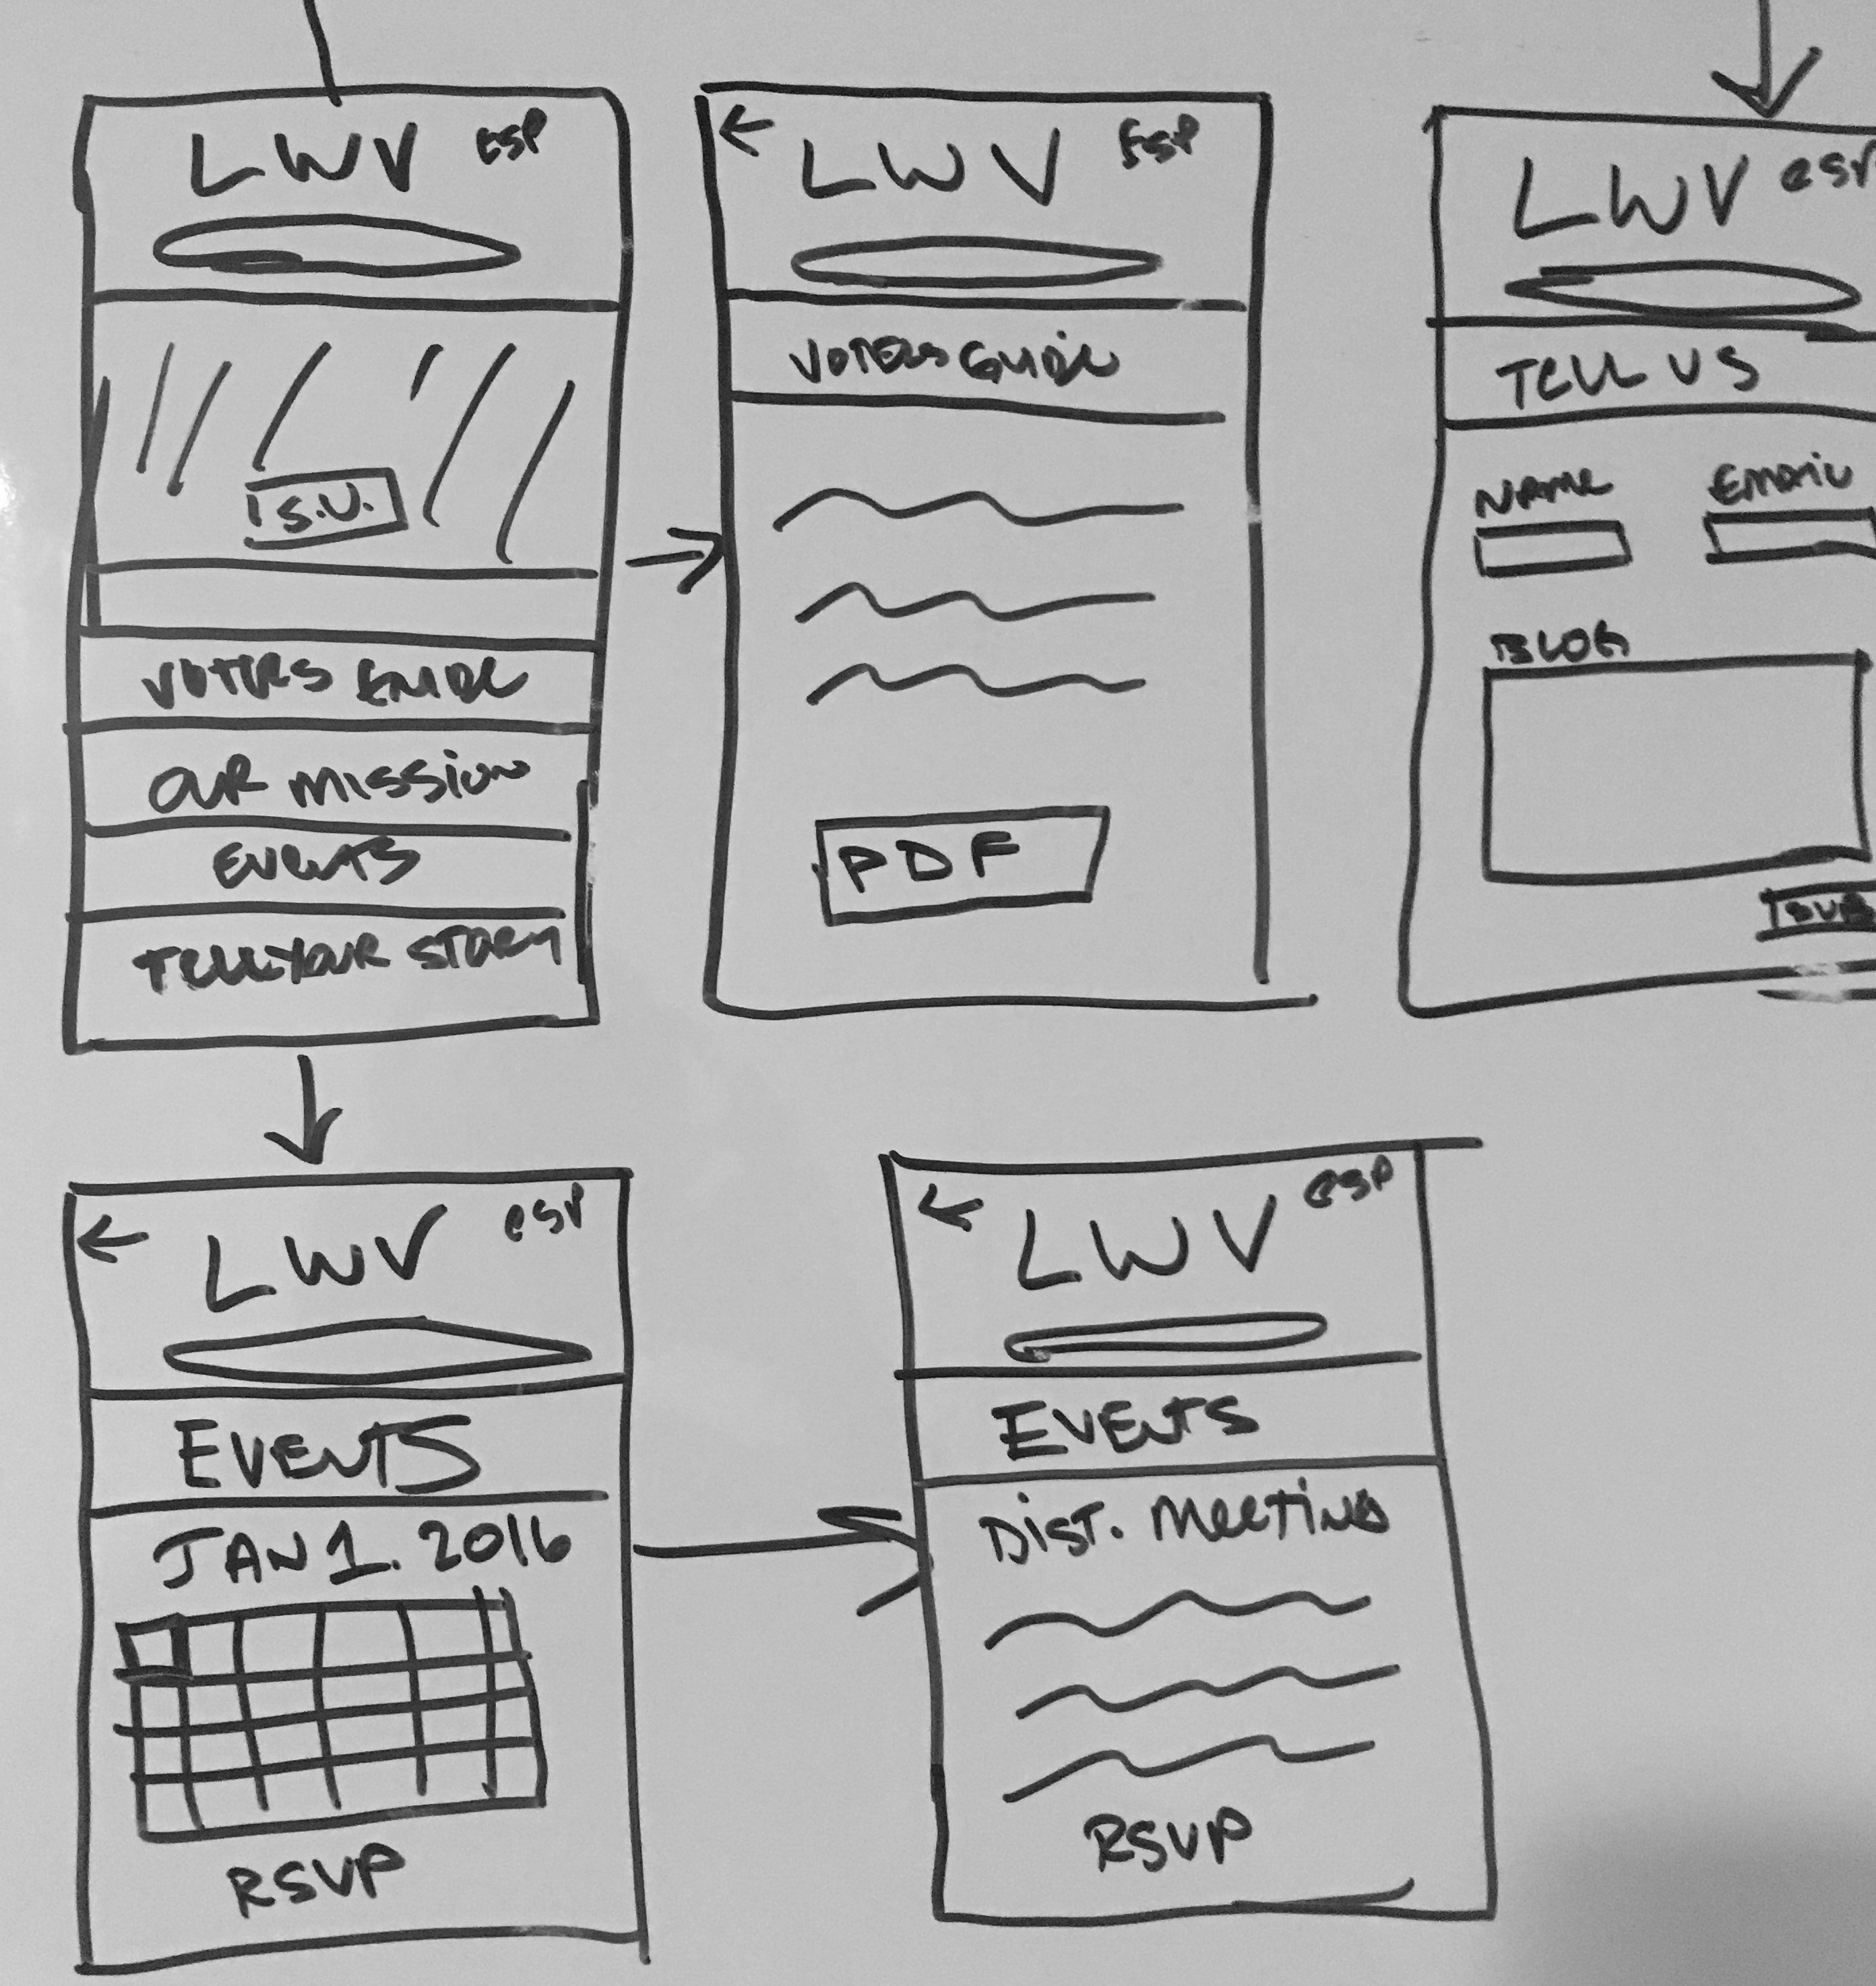 LWV ESP
S.U.
VOTERS GUIDE
OUR MISSION
EVENTS
TELL YOUR STORY
LWV ESP
VOTERS GUIDE
PDF
LWV esp
TELL US
NAME EMAIL
BLOG
LWV esp
EVENTS
JAN 1. 2016
RSVP
LWV esp
EVENTS
DIST. MEETING
RSVP